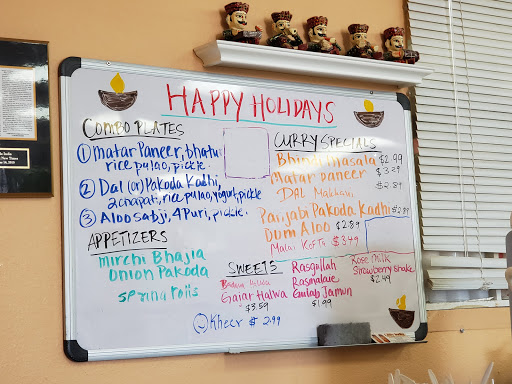 HAPPY HOLIDAYS
COMBO PLATES
① matar Paneer, bhatu
rice pulao, pickle.
② Dal (or) Pakoda Kadhi,
2 chapati, rice pulao, yogurt, pickle
③ Aloo sabji, 4 Puri, pickle.
APPETIZERS
Mirchi Bhajia
Onion Pakoda
spring rolls
CURRY SPECIALS
Bhindi masala $2.99
matar paneer $3.29
DAL Makhani $2.89
Panjabi Pakoda Kadhi $2.89
Dum Aloo $2.89
Malai Kofta $3.49
SWEETS
Halwa
Gajar Halwa
$3.59
Rasgullah
Rasmalaie
Gulab Jamun
$1.99
Rose Milk
Strawberry shake
$2.49
@Kheer $2.99